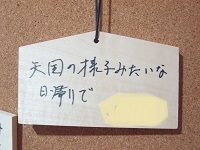 天国の様子みたいな
日滞りで